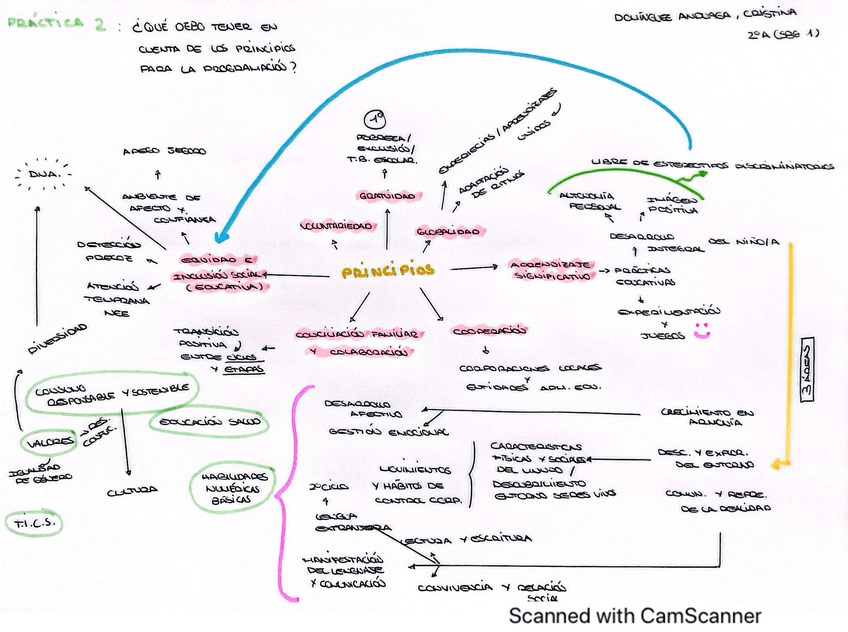 PRÁCTICA 2 : ¿QUÉ DEBO TENER EN
CUENTA DE LOS PRINCIPIOS
PARA LA PROGRAMACIÓN?
DOMÍNGUEZ ANDÚAGA, CRISTINA
2ºA (SBG 1)
1º
POBREZA/
EXCLUSIÓN/
T.B. ESCOLAR.
GRATUIDAD
VOLUNTARIEDAD
GLOBALIDAD
EXPERIECIAS / APRENDIZAJES
UNIDOS
ADAPTACIÓN
DE RITMOS
LIBRE DE ESTEREOTIPOS DISCRIMINATORIOS
AUTONOMÍA
PERSONAL
IMÁGEN
POSITIVA
DESAROLLO
INTEGRAL DEL NIÑO/A
APEGO SEGURO
AMBIENTE DE
AFECTO Y
CONFIANZA
D.U.A.
DETECCIÓN
PRECOZ
ATENCIÓN
TEMPRANA
NEE
EQUIDAD E
INCLUSIÓN SOCIAL
(EDUCATIVA)
PRINCIPIOS
APRENDIZAJE
SIGNIFICATIVO
PRÁCTICAS
EDUCATIVAS
EXPERIMENTACIÓN
Y
JUEGOS
3 ÁREAS
DIVERSIDAD
TRANSICIÓN
POSITIVA
ENTRE CICLOS
Y ETAPAS
CONCILIACIÓN FAMILIAR
Y COLABORACIÓN
COOPERACIÓN
CORPORACIONES LOCALES
Y
ENTIDADES ADM. EDU.
CONSUMO
RESPONSABLE Y SOSTENIBLE
EDUCACIÓN SALUD
VALORES
RES.
CONFLIC.
IGUALDAD
DE GÉNERO
CULTURA
T.I.C.S.
HABILIDADES
NUMÉRICAS
BÁSICAS
DESAROLLO
AFECTIVO
GESTIÓN EMOCIONAL
CRECIMIENTO EN
ARMONÍA
MOVIMIENTOS
Y HÁBITOS DE
CONTROL CORP.
CARACTERISTICAS
FÍSICAS Y SOCIALES
DEL MUNDO /
DESCUBRIMIENTO
ENTORNO SERES VIVOS
DESC. Y EXPOR.
DEL ENTORNO
COMUN. Y REPRE.
DE LA REALIDAD
2º CICLO
LENGUA
EXTRANJERA
LECTURA Y ESCRITURA
MANIFESTACIÓN
DEL LENGUAJE
Y COMUNICACIÓN
CONVIVENCIA Y RELACIÓN
SOCIAL
Scanned with CamScanner